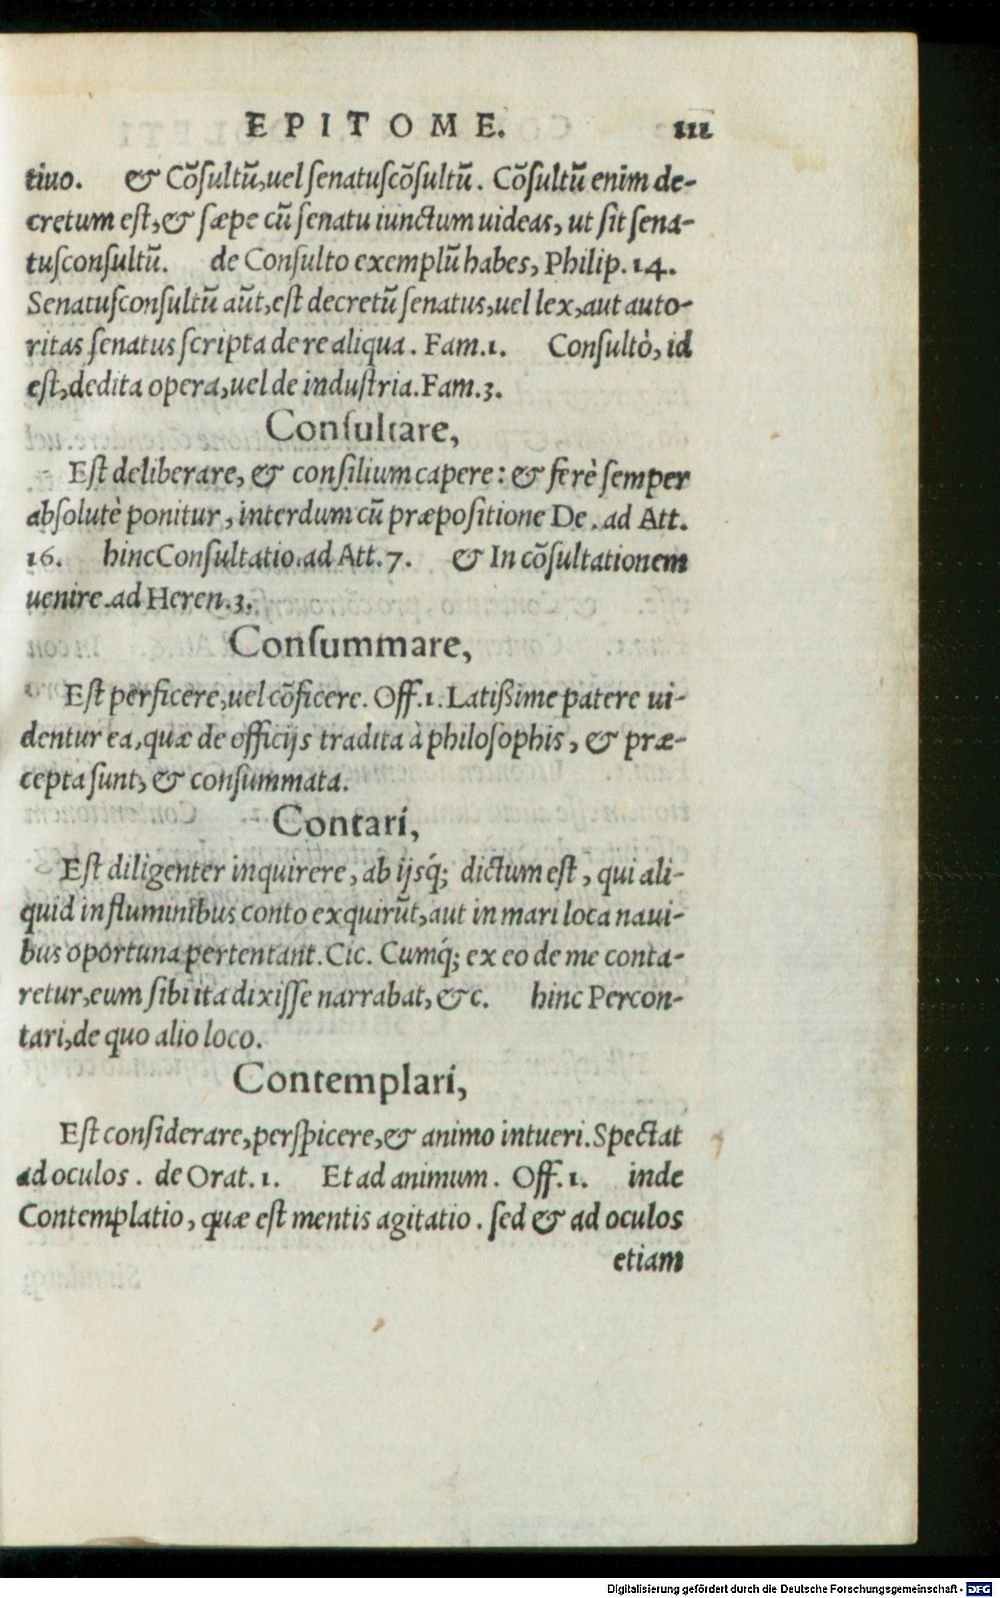 EPITOME. 111
tiuo. & Cõſultũ, uel ſenatuſcõſultũ. Cõſultũ enim de-
cretum eſt, & ſæpe cũ ſenatu iunctum uideas, ut ſit ſena-
tuſconſultũ. de Conſulto exemplũ habes, Philip. 14.
Senatuſconſultũ aũt, eſt decretũ ſenatus, uel lex, aut auto-
ritas ſenatus ſcripta de re aliqua. Fam. 1. Conſultò, id
eſt, dedita opera, uel de induſtria. Fam. 3.
Conſultare,
Eſt deliberare, & conſilium capere: & ferè ſemper
abſolutè ponitur, interdum cũ præpoſitione De. ad Att.
16. hinc Conſultatio. ad Att. 7. & In cõſultationem
uenire. ad Heren. 3.
Conſummare,
Eſt perficere, uel cõficere. Off. 1. Latißime patere ui-
dentur ea, quæ de officijs tradita à philoſophis, & præ-
cepta ſunt, & conſummata.
Contari,
Eſt diligenter inquirere, ab ijsq́; dictum eſt, qui ali-
quid in fluminibus conto exquirũt, aut in mari loca naui-
bus oportuna pertentant. Cic. Cumq́; ex eo de me conta-
retur, eum ſibi ita dixiſſe narrabat, &c. hinc Percon-
tari, de quo alio loco.
Contemplari,
Eſt conſiderare, perſpicere, & animo intueri. Spectat
ad oculos. de Orat. 1. Et ad animum. Off. 1. inde
Contemplatio, quæ eſt mentis agitatio. ſed & ad oculos
etiam
Digitalisierung gefördert durch die Deutsche Forschungsgemeinschaft - DFG